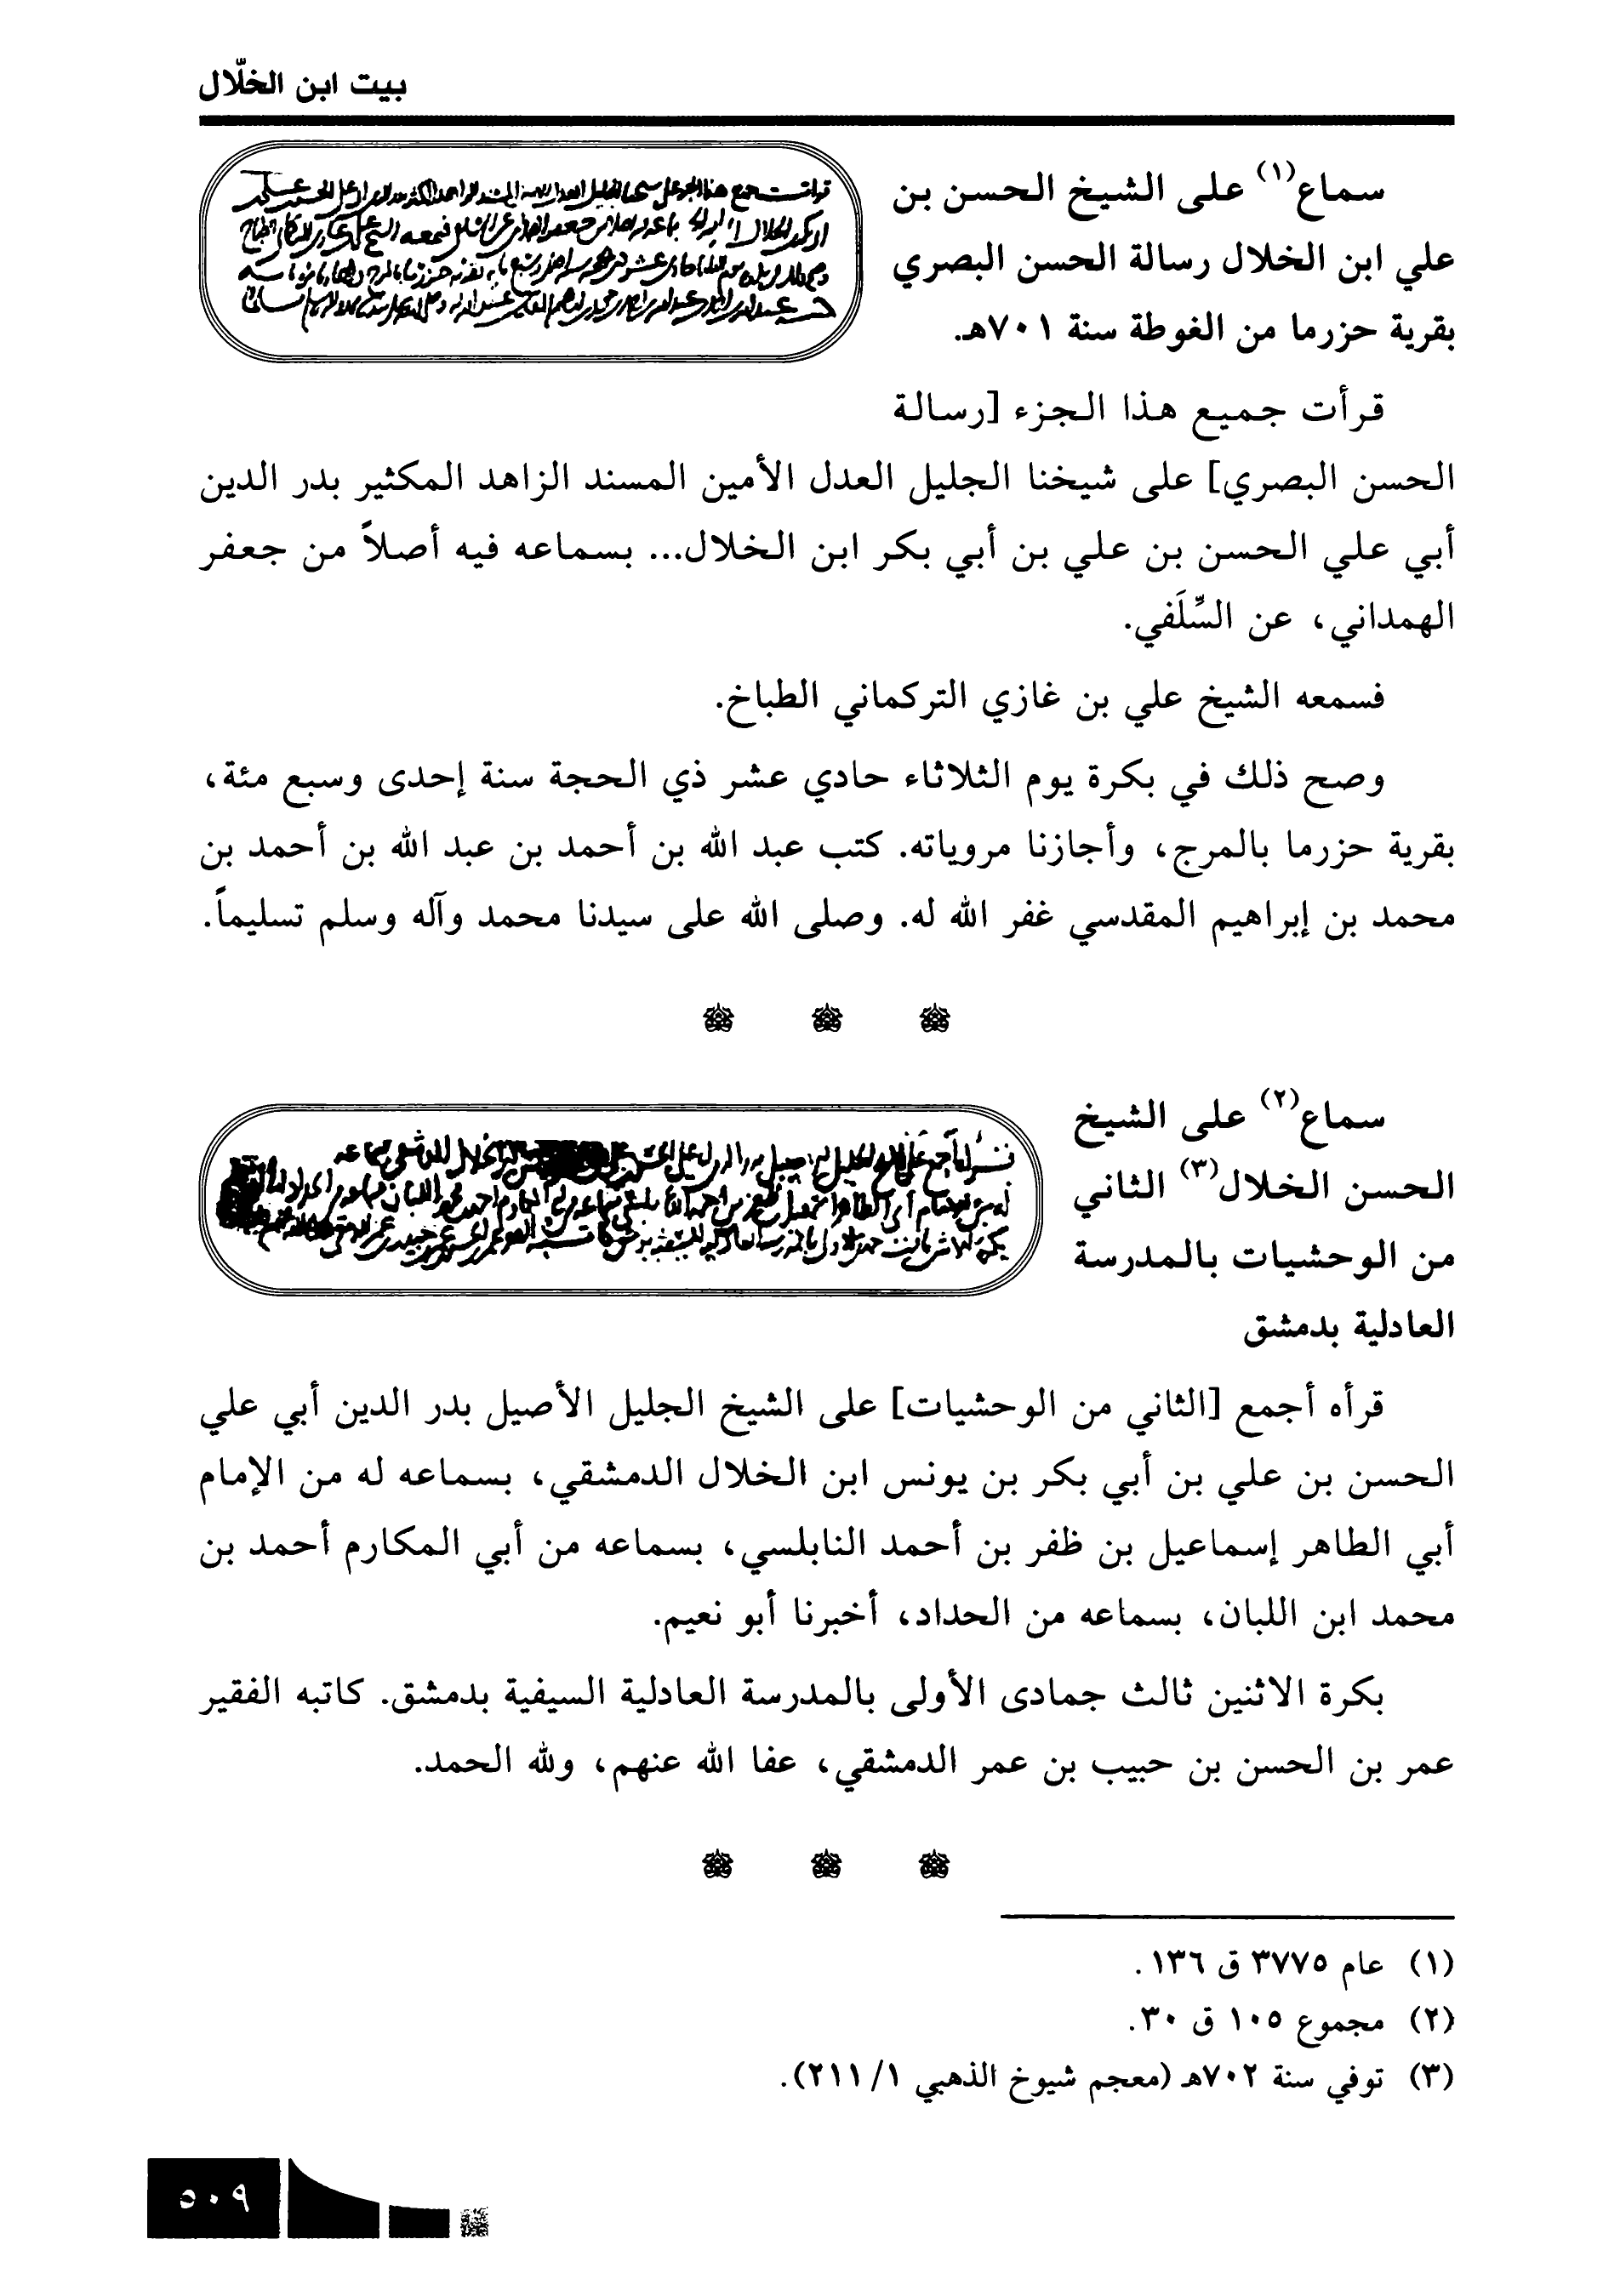 بيت ابن الخلّال
سماع(١) على الشيخ الحسن بن
علي ابن الخلال رسالة الحسن البصري
بقرية حزرما من الغوطة سنة ٧٠١هـ.
قرأت جميع هذا الجزء [رسالة
الحسن البصري] على شيخنا الجليل العدل الأمين المسند الزاهد المكثير بدر الدين
أبي علي الحسن بن علي بن أبي بكر ابن الخلال... بسماعه فيه أصلاً من جعفر
الهمداني، عن السِّلَفي.
فسمعه الشيخ علي بن غازي التركماني الطباخ.
وصح ذلك في بكرة يوم الثلاثاء حادي عشر ذي الحجة سنة إحدى وسبع مئة،
بقرية حزرما بالمرج، وأجازنا مروياته. كتب عبد الله بن أحمد بن عبد الله بن أحمد بن
محمد بن إبراهيم المقدسي غفر الله له. وصلى الله على سيدنا محمد وآله وسلم تسليماً.
سماع(٢) على الشيخ
الحسن الخلال(٣) الثاني
من الوحشيات بالمدرسة
العادلية بدمشق
قرأه أجمع [الثاني من الوحشيات] على الشيخ الجليل الأصيل بدر الدين أبي علي
الحسن بن علي بن أبي بكر بن يونس ابن الخلال الدمشقي، بسماعه له من الإمام
أبي الطاهر إسماعيل بن ظفر بن أحمد النابلسي، بسماعه من أبي المكارم أحمد بن
محمد ابن اللبان، بسماعه من الحداد، أخبرنا أبو نعيم.
بكرة الاثنين ثالث جمادى الأولى بالمدرسة العادلية السيفية بدمشق. كاتبه الفقير
عمر بن الحسن بن حبيب بن عمر الدمشقي، عفا الله عنهم، ولله الحمد.
(١) عام ٣٧٧٥ ق ١٣٦.
(٢) مجموع ١٠٥ ق ٣٠.
(٣) توفي سنة ٧٠٢هـ (معجم شيوخ الذهبي ١/ ٢١١).
٥٠٩